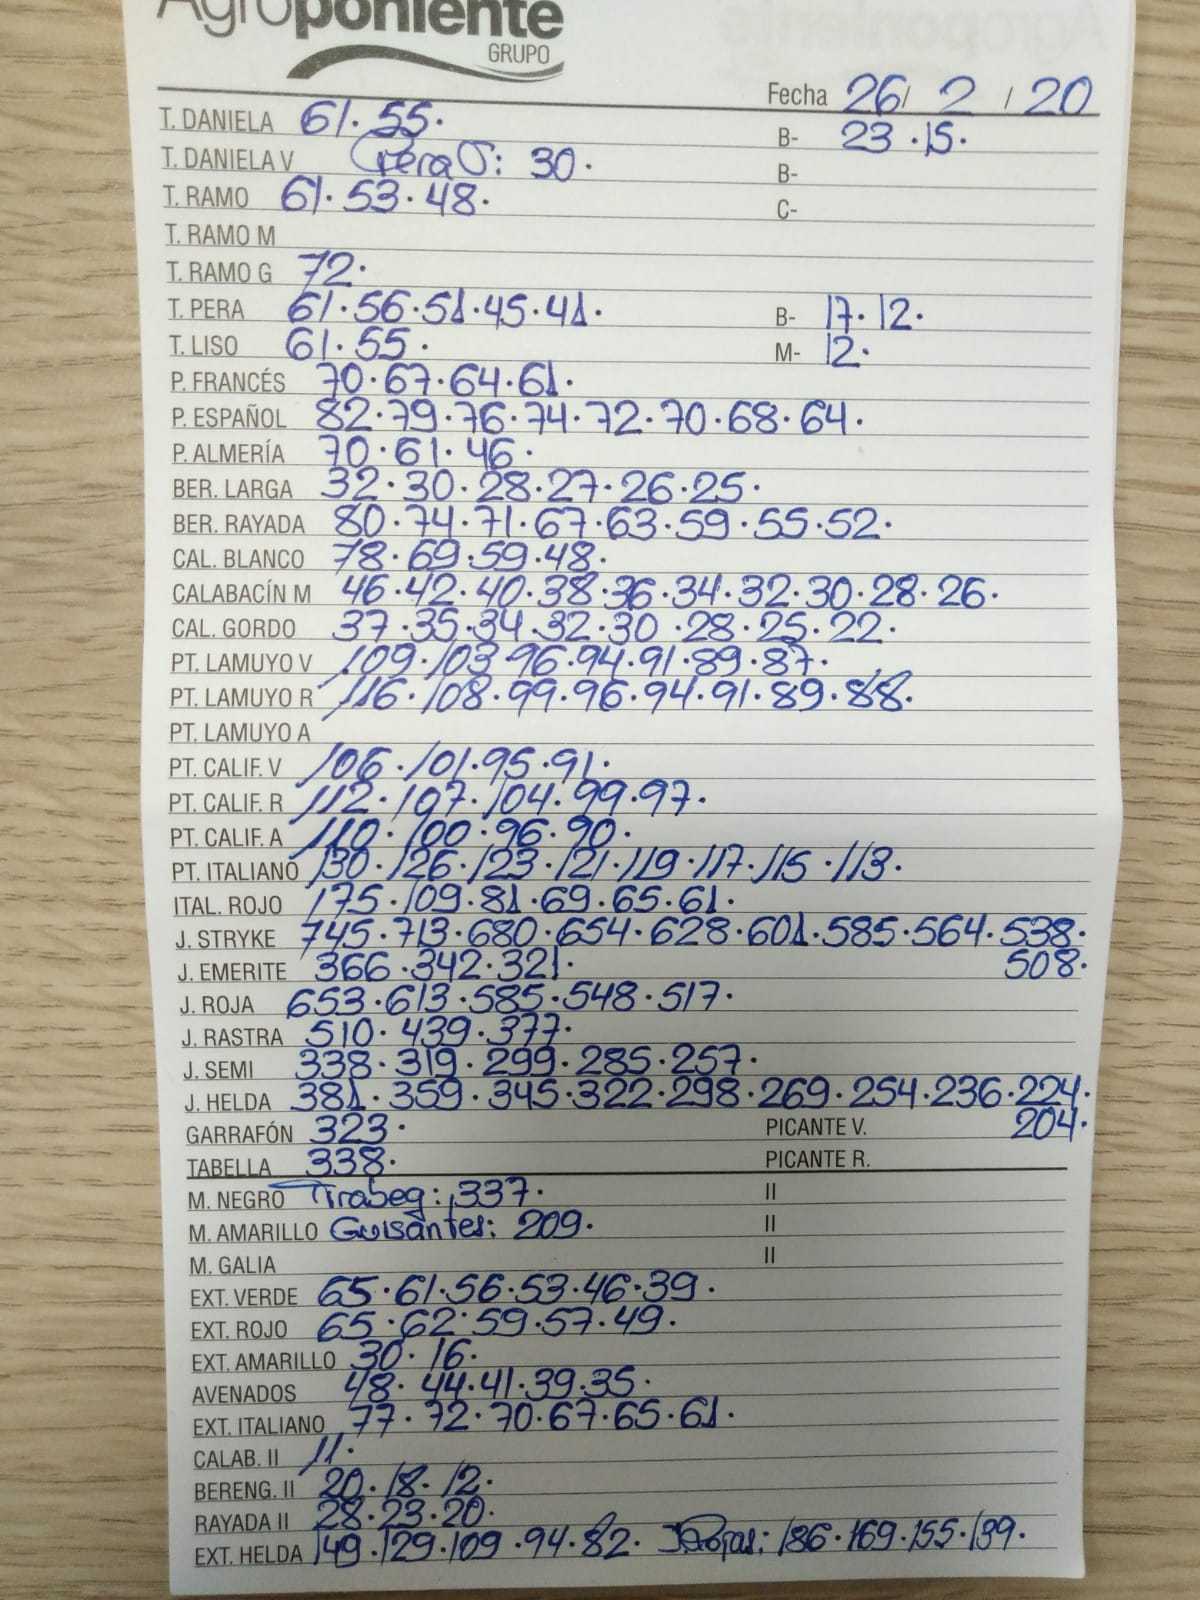 Agroponiente
GRUPO
Fecha 26/ 2 / 20
T. DANIELA 61. 55. B- 23 . 15.
T. DANIELA V Pera G: 30. B-
T. RAMO 61. 53. 48. C-
T. RAMO M
T. RAMO G 72.
T. PERA 61. 56. 51. 45. 41. B- 17. 12.
T. LISO 61. 55. M- 12.
P. FRANCÉS 70. 67. 64. 61.
P. ESPAÑOL 82. 79. 76. 74. 72. 70. 68. 64.
P. ALMERÍA 70. 61. 46.
BER. LARGA 32. 30. 28. 27. 26. 25.
BER. RAYADA 80. 74. 71. 67. 63. 59. 55. 52.
CAL. BLANCO 78. 69. 59. 48.
CALABACÍN M 46. 42. 40. 38. 36. 34. 32. 30. 28. 26.
CAL. GORDO 37. 35. 34. 32. 30. 28. 25. 22.
PT. LAMUYO V 109. 103. 96. 94. 91. 89. 87.
PT. LAMUYO R 116. 108. 99. 96. 94. 91. 89. 88.
PT. LAMUYO A
PT. CALIF. V 106. 101. 95. 91.
PT. CALIF. R 112. 107. 104. 99. 97.
PT. CALIF. A 110. 100. 96. 90.
PT. ITALIANO 130. 126. 123. 121. 119. 117. 115. 113.
ITAL. ROJO 175. 109. 81. 69. 65. 61.
J. STRYKE 745. 713. 680. 654. 628. 601. 585. 564. 538.
J. EMERITE 366. 342. 321. 508.
J. ROJA 653. 613. 585. 548. 517.
J. RASTRA 510. 439. 377.
J. SEMI 338. 319. 299. 285. 257.
J. HELDA 381. 359. 345. 322. 298. 269. 254. 236. 224.
GARRAFÓN 323. PICANTE V. 204.
TABELLA 338. PICANTE R.
M. NEGRO Tirabeq: 337. II
M. AMARILLO Guisantes: 209. II
M. GALIA II
EXT. VERDE 65. 61. 56. 53. 46. 39.
EXT. ROJO 65. 62. 59. 57. 49.
EXT. AMARILLO 30. 16.
AVENADOS 48. 44. 41. 39. 35.
EXT. ITALIANO 77. 72. 70. 67. 65. 61.
CALAB. II 11.
BERENG. II 20. 18. 12.
RAYADA II 28. 23. 20.
EXT. HELDA 149. 129. 109. 94. 82. 186. 169. 155. 139.